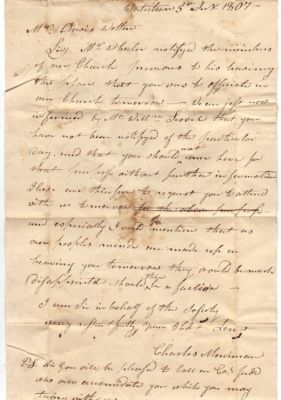 Watertown 5th Sept 1807 -
Mr. Dewis
Sir, Mr. Wheeler notified the members
of our Church previous to his leaving
this place that you was to officiate in
our Church tomorrow - I am just now
informed by Mr. Willm that you
have not been notified of the particular
day, and that you should not come here for
that purpose without further information
These are therefore to request you to attend
with us tomorrow for the above purpose
and especially I would mention that as
our peoples minds are made up on
hearing you tomorrow they would be much
disappointed should there be a failure -
I am Sir in behalf of the Society
very respectfully your Obdt. Servt.
Charles Merriman
P.S. Sir You will be pleased to call on Capt. Judd
who will accomodate you while you may
tarry with us